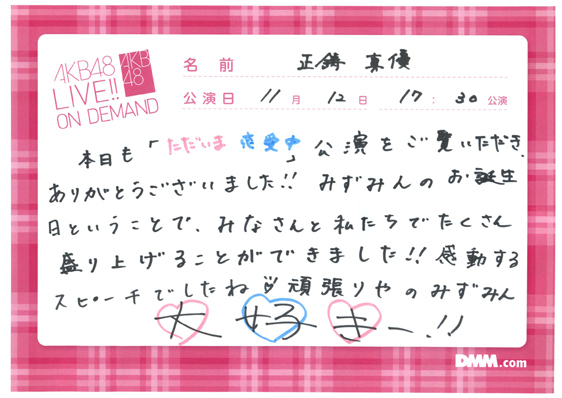 AKB48
LIVE!!
ON DEMAND
AKB
48
名前 正鋳真優
公演日 11月12日 17:30公演
本日も「ただいま恋愛中」公演をご覧いただき、
ありがとうございました!! みずみんのお誕生
日ということで、みなさんと私たちでたくさん
盛り上げることができました!! 感動する
スピーチでしたね 頑張りやのみずみん
大好きー!!
DMM.com